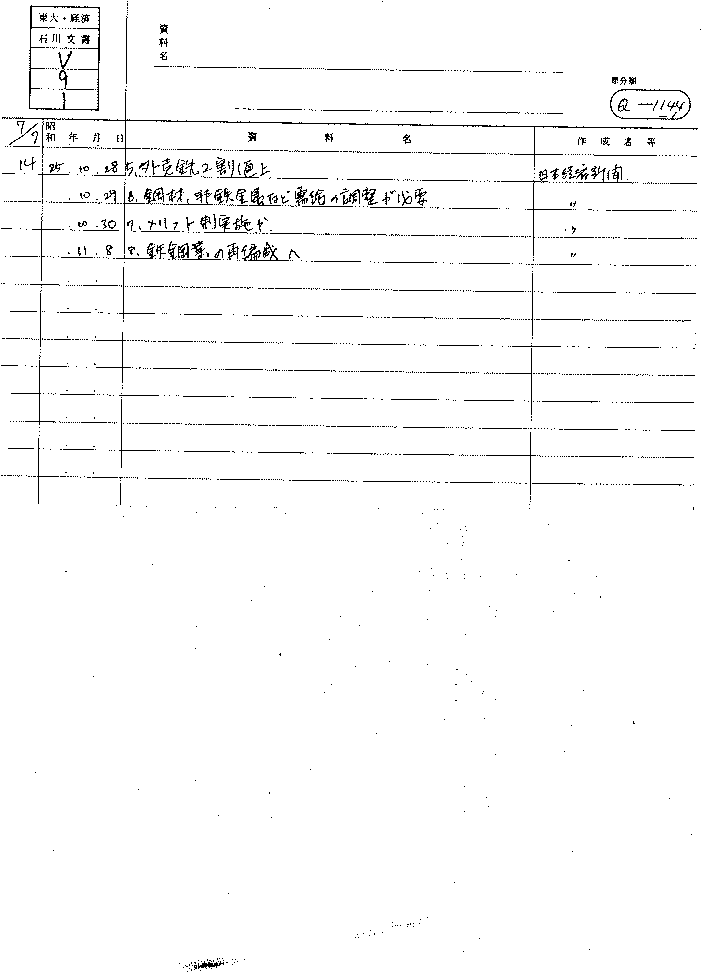 東大・経済
石川文書
V
9
1
資料名
原分類
Q-1144
7/7 昭和 年 月 日 資料名 作成者等
14 25 10 28 5、外売銑2割値上 日本経済新聞
10 29 6、鋼材、非鉄金属など需給の調整が必要 〃
10 30 7、メリット制実施か 〃
11 8 8、鉄鋼業の再編成へ 〃